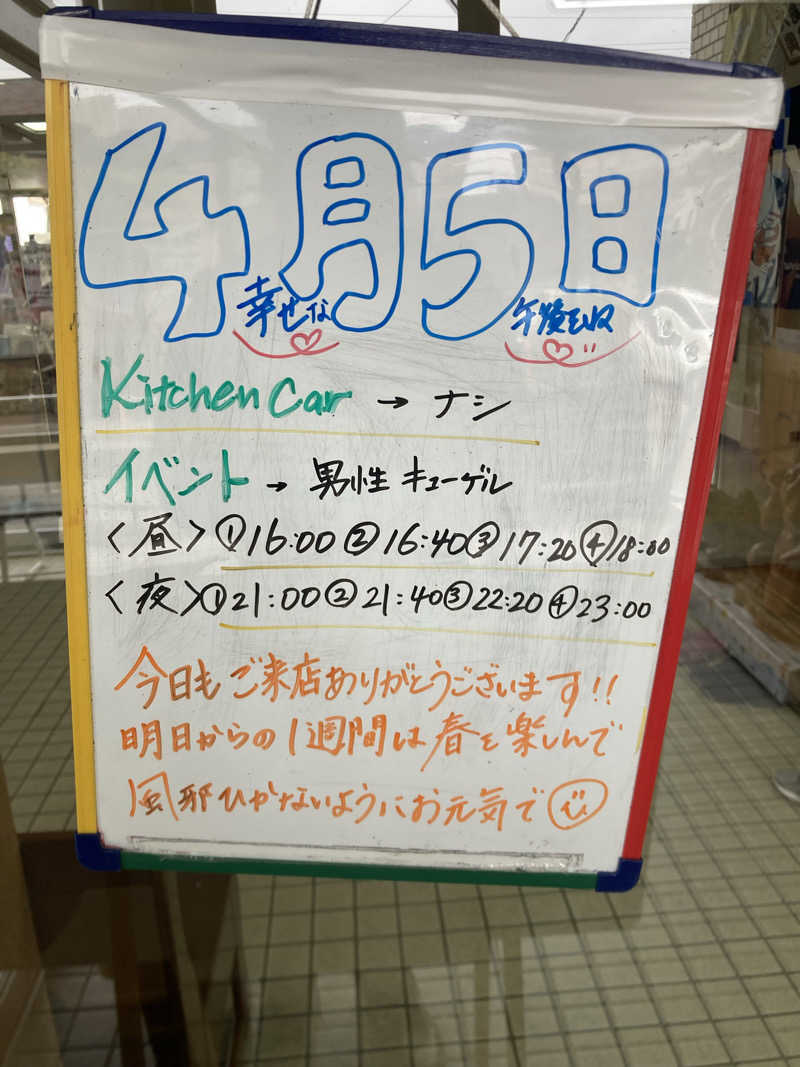 4月5日
幸せな 午後を収
Kitchen Car → ナシ
イベント → 男性 キューゲル
〈昼〉①16:00②16:40③17:20④18:00
〈夜〉①21:00②21:40③22:20④23:00
今日もご来店ありがとうございます!!
明日からの1週間は春を楽しんで
風邪ひかないようにお元気で